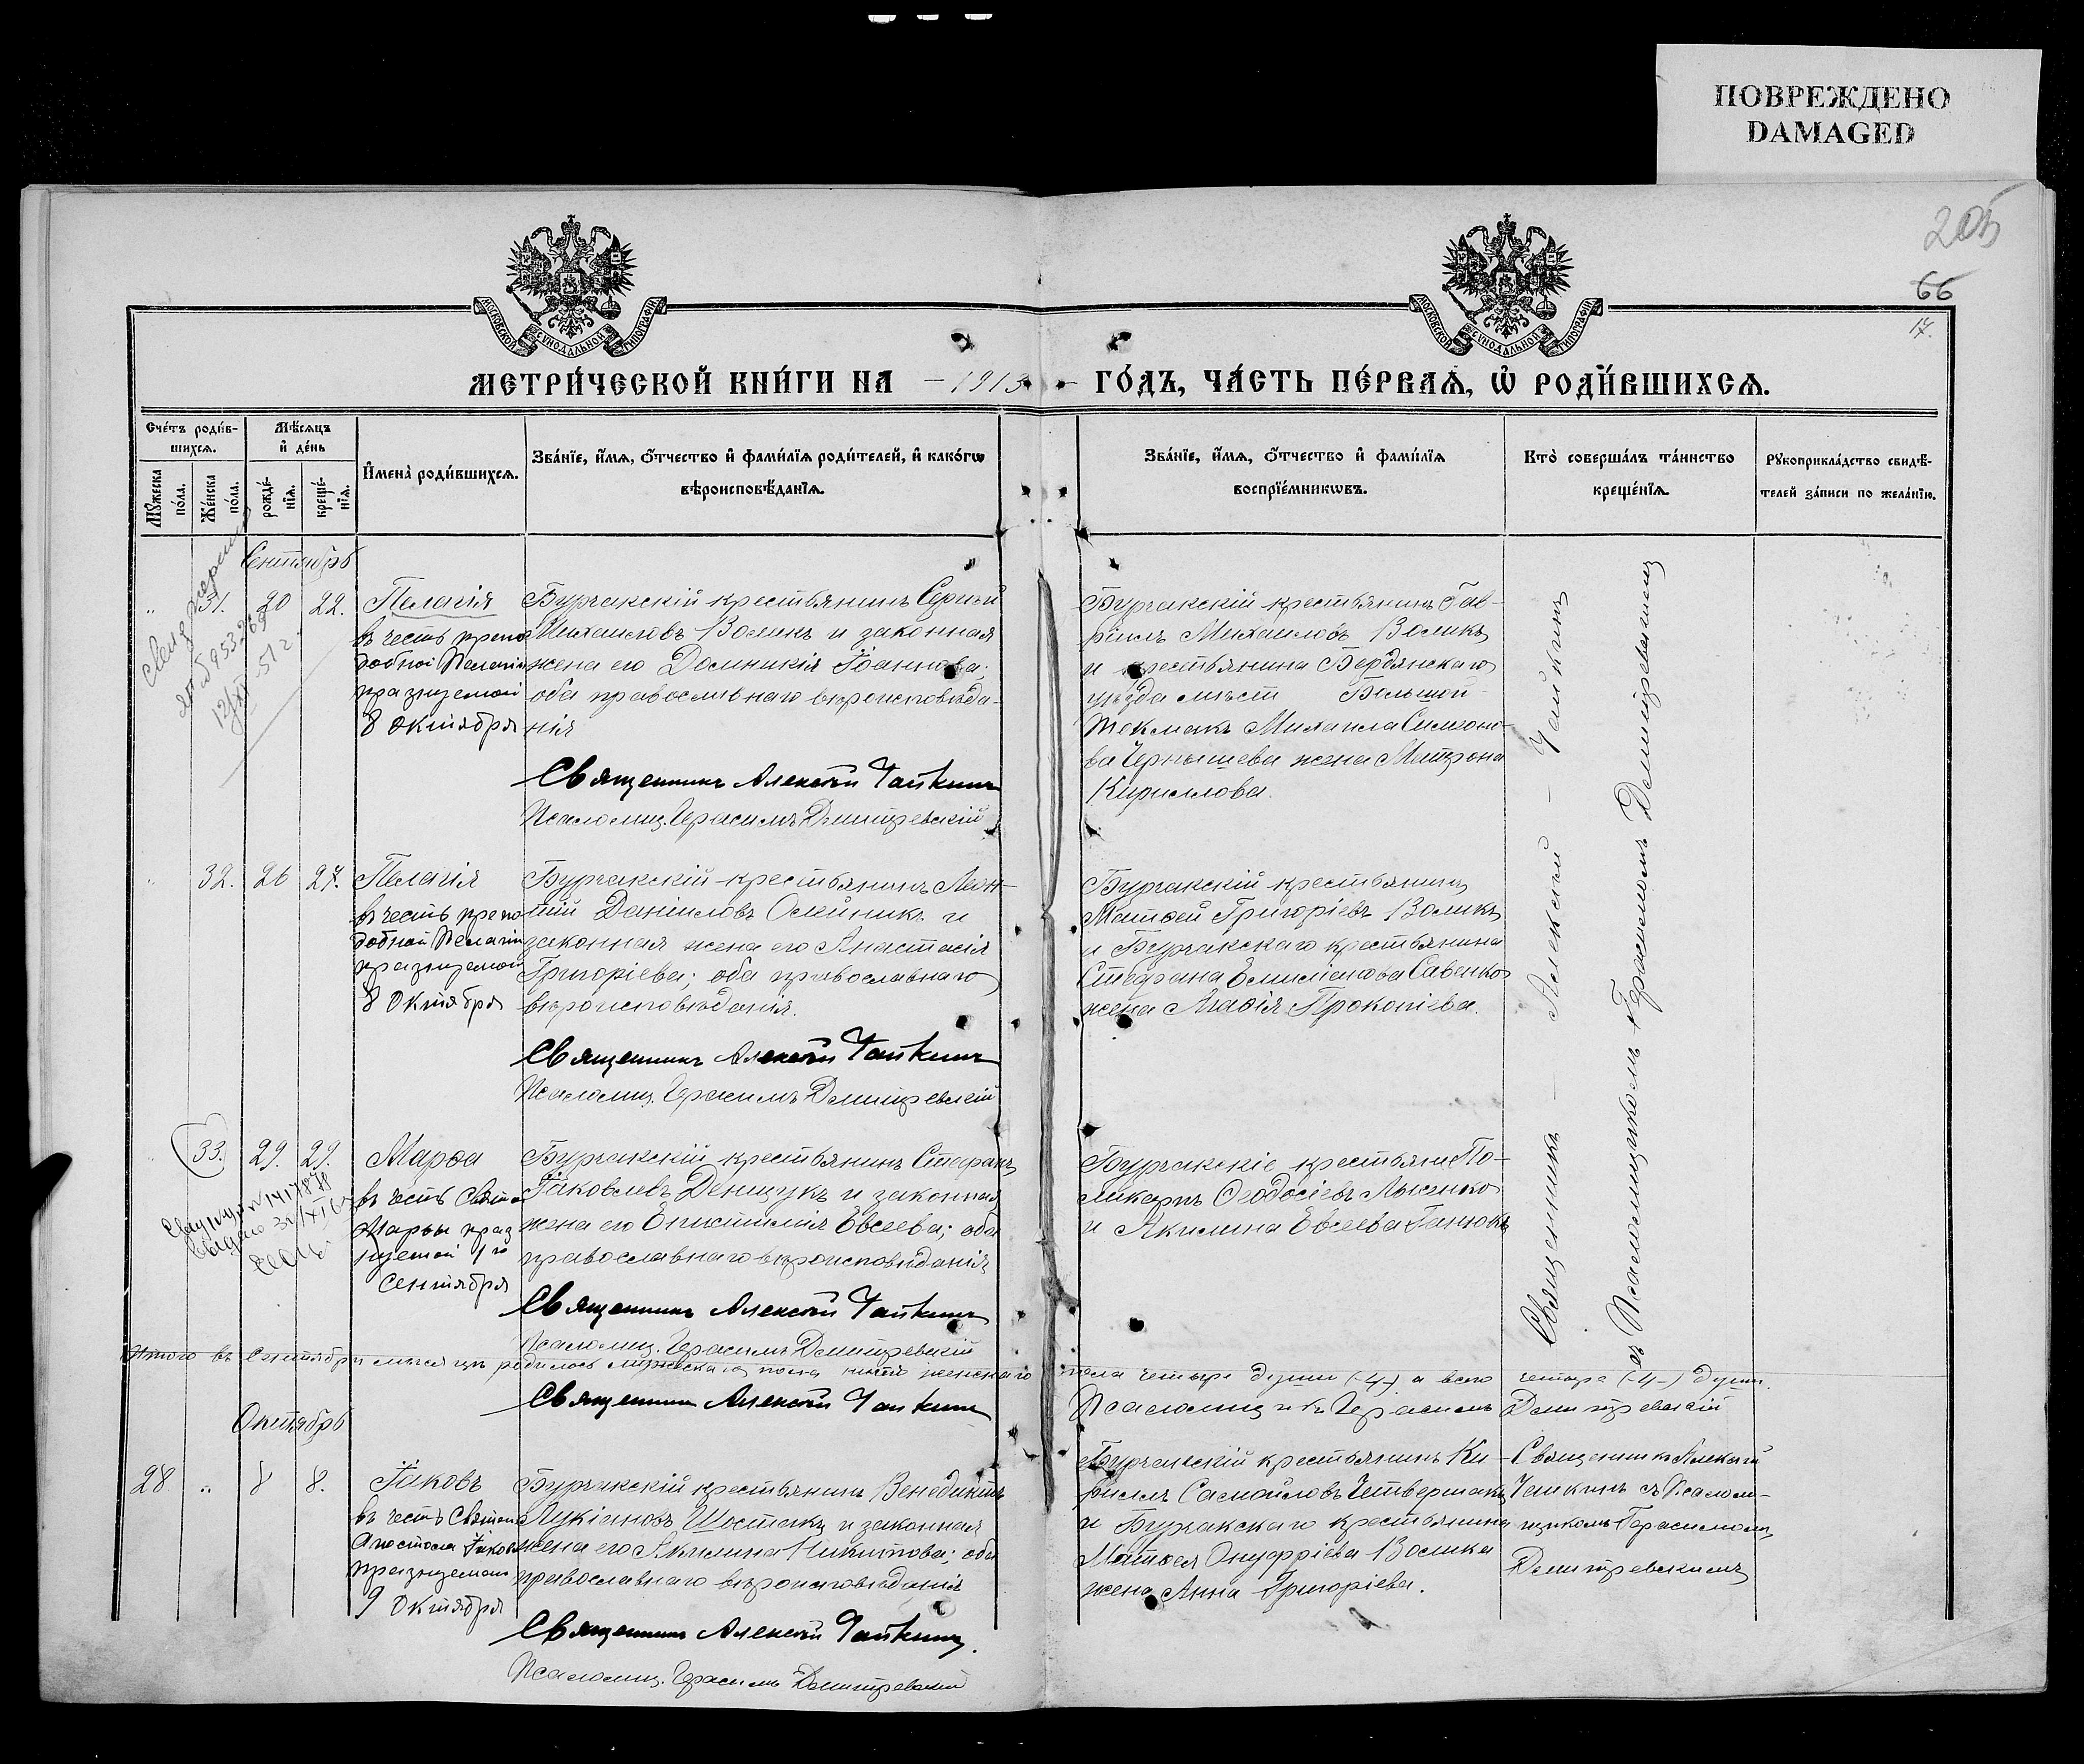 ПОВРЕЖДЕНО
DAMAGED
205
66
17.
МОСКОВСКОЙ СУНОДАЛЬНОЙ ТИПОГРАФИИ
МОСКОВСКОЙ СУНОДАЛЬНОЙ ТИПОГРАФИИ
МЕТРИ́ЧЕСКОЙ КНИ́ГИ НА -1913- ГО́ДЪ, ЧА́СТЬ ПЕ́РВАѦ, Ѡ РОДИ́ВШИХСѦ.
Сче́тъ роди́в-
шихсѧ.
Мѣ́сѧцъ
и҆ де́нь
Мꙋ́жеска
по́ла.
Же́нска
по́ла.
рожде́-
нїѧ.
креще́-
нїѧ.
И҆мена̀ роди́вшихсѧ.
Зва́нїе, и҆́мѧ, ѻ҆́тчество и҆ фами́лїѧ роди́телей, и҆ како́гѡ
вѣроисповѣ́данїѧ.
Зва́нїе, и҆́мѧ, ѻ҆́тчество и҆ фами́лїѧ
воспрїе́мникѡвъ.
Кто̀ соверша́лъ та́инство
креще́нїѧ.
Рꙋкоприкла́дство свидѣ́-
телей за́писи по жела́нїю.
Сентябрь
„ 31. 20 22.
Пелагія
въ честь препо
добной Пелагіи
празнуемой
8 Октября
Бурчакскій крестьянинъ Сергѣй
Михаиловъ Воликъ и законная
жена его Домникія Іоаннова;
оба православнаго вѣроисповѣда-
нія
Священникъ Алексѣй Чайкинъ
Псаломщ. Герасимъ Димитревскій
Бурчакскій крестьянинъ Гав-
ріилъ Михаиловъ Воликъ
и крестьянина Бердянскаго
уѣзда мѣст Большой
Токмакъ Михаила Симоно-
ва Чернышева жена Матрона
Кириллова.
Священникъ - Алексѣй - Чайкинъ
съ Псаломщикомъ Герасимомъ Димитревскимъ
„ 32. 26 27.
Пелагія
въ честь препо
добной Пелагіи
празнуемой
8 Октября
Бурчакскій крестьянинъ Леон-
тій Даніиловъ Олейникъ и
законная жена его Анастасія
Григоріева; оба православнаго
вѣроисповѣданія.
Священникъ Алексѣй Чайкинъ
Псаломщ. Герасимъ Димитревскій
Бурчакскій крестьянинъ
Матѳей Григоріевъ Воликъ
и Бурчакскаго крестьянина
Стефана Емиліанова Савенко
жена Агаѳія Прокопіева.
„ 33. 29. 29.
Марѳа
въ честь Святой
Марѳы праз
нуемой 1го
Сентября
Бурчакскій крестьянинъ Стефанъ
Іаковлевъ Денщукъ и законная
жена его Епистимія Евсеева; оба
православнаго вѣроисповѣданія
Священникъ Алексѣй Чайкинъ
Псаломщ. Герасимъ Димитревскій
Бурчакскіе крестьяне По-
ликарпъ Ѳеодосіевъ Лысенко
и Акилина Евсеева Ганюкъ
Итого въ Сентябрѣ мѣсяцѣ родилось мужескаго пола никто женскаго пола четыре души (-4-) а всего четыре (-4-) души.
Священникъ Алексѣй Чайкинъ
Псаломщикъ Герасимъ Димитревскій
Октябрь
28 „ 8 8.
Іаковъ
въ честь Святаго
Апостола Іакова
празнуемаго
9 Октября
Бурчакскій крестьянинъ Венедиктъ
Лукіановъ Шостакъ и законная
жена его Акилина Никитова; оба
православнаго вѣроисповѣданія
Священникъ Алексѣй Чайкинъ.
Псаломщ. Герасимъ Димитревскій
Бурчакскій крестьянинъ Ки-
риллъ Самойловъ Четвертакъ
и Бурчакскаго крестьянина
Матѳея Онуфріева Волика
жена Анна Григоріева.
Священникъ Алексѣй
Чайкинъ съ Псалом-
щикомъ Герасимомъ
Димитревскимъ